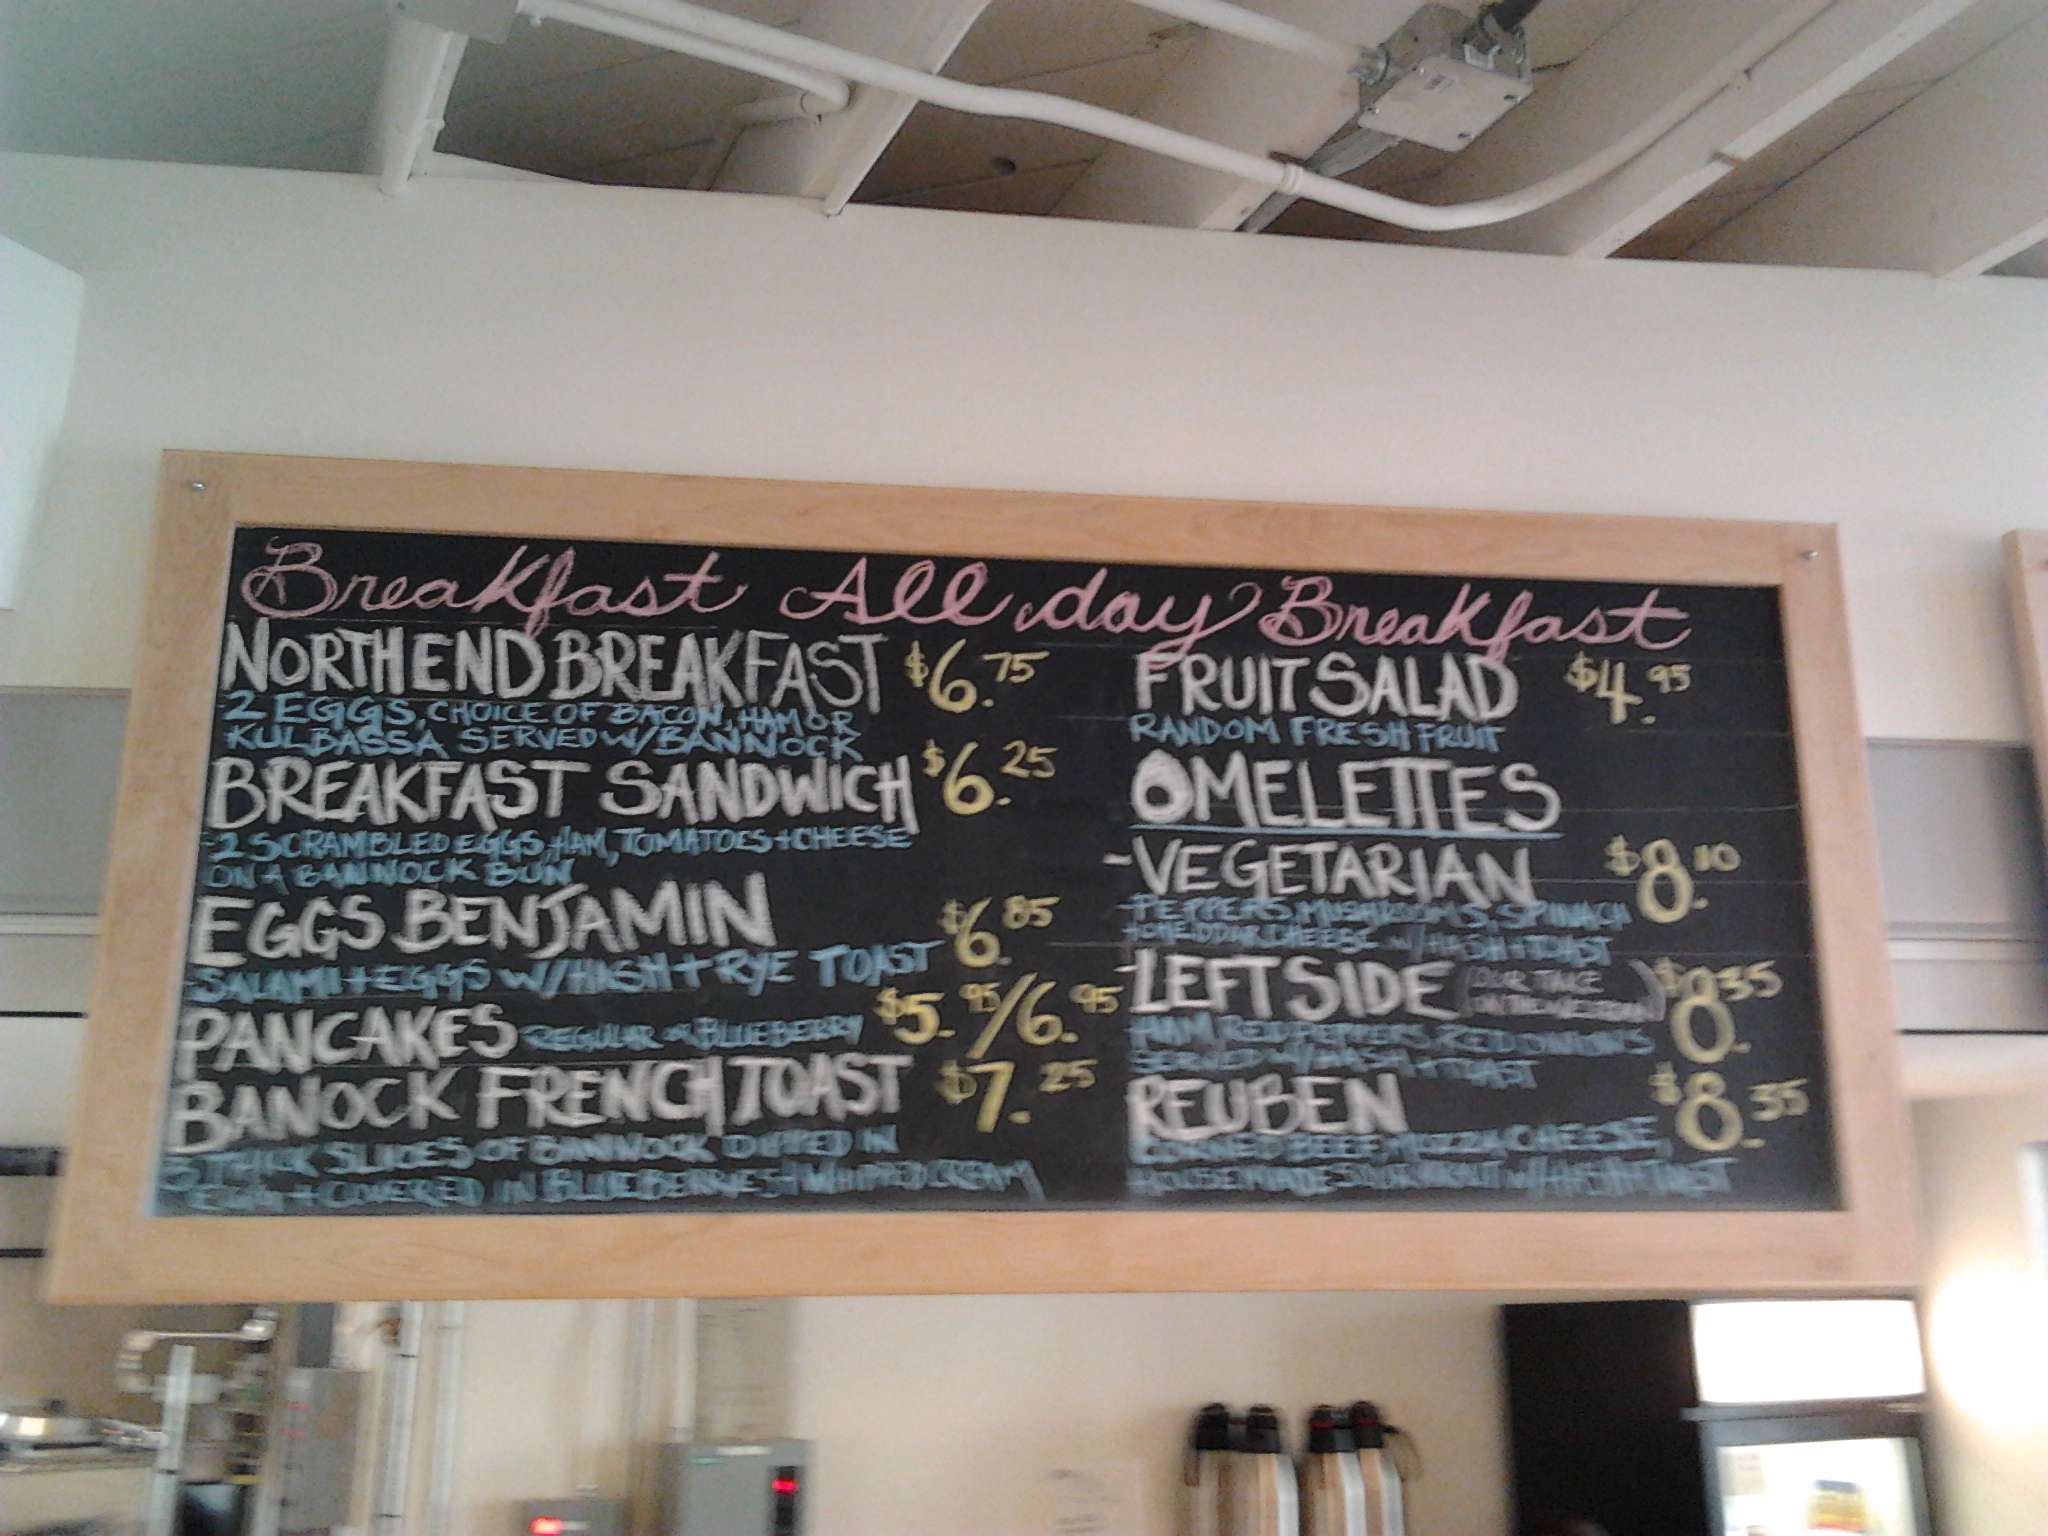 Breakfast All day Breakfast
NORTH END BREAKFAST $6.75
-2 EGGS, CHOICE OF BACON, HAM OR
KULBASSA SERVED W/BANNOCK
BREAKFAST SANDWICH $6.25
-2 SCRAMBLED EGGS, HAM, TOMATOES + CHEESE
ON A BANNOCK BUN
EGGS BENJAMIN $6.85
SALAMI + EGGS W/HASH + RYE TOAST
PANCAKES REGULAR or BLUEBERRY $5.95/6.95
BANOCK FRENCH TOAST $7.25
3 THICK SLICES OF BANNOCK DIPPED IN
EGG + COVERED IN BLUEBERRIES + WHIPPED CREAM
FRUIT SALAD $4.95
RANDOM FRESH FRUIT
OMELETTES
-VEGETARIAN $8.10
-PEPPERS, MUSHROOMS, SPINACH
+ CHEDDAR CHEESE W/HASH + TOAST
-LEFT SIDE (OUR TAKE $8.35
ON THE WESTERN)
HAM, RED PEPPERS, RED ONIONS
SERVED W/HASH + TOAST
REUBEN $8.35
CORNED BEEF, MOZZA CHEESE,
HOUSEMADE SAUERKRAUT W/HASH + TOAST